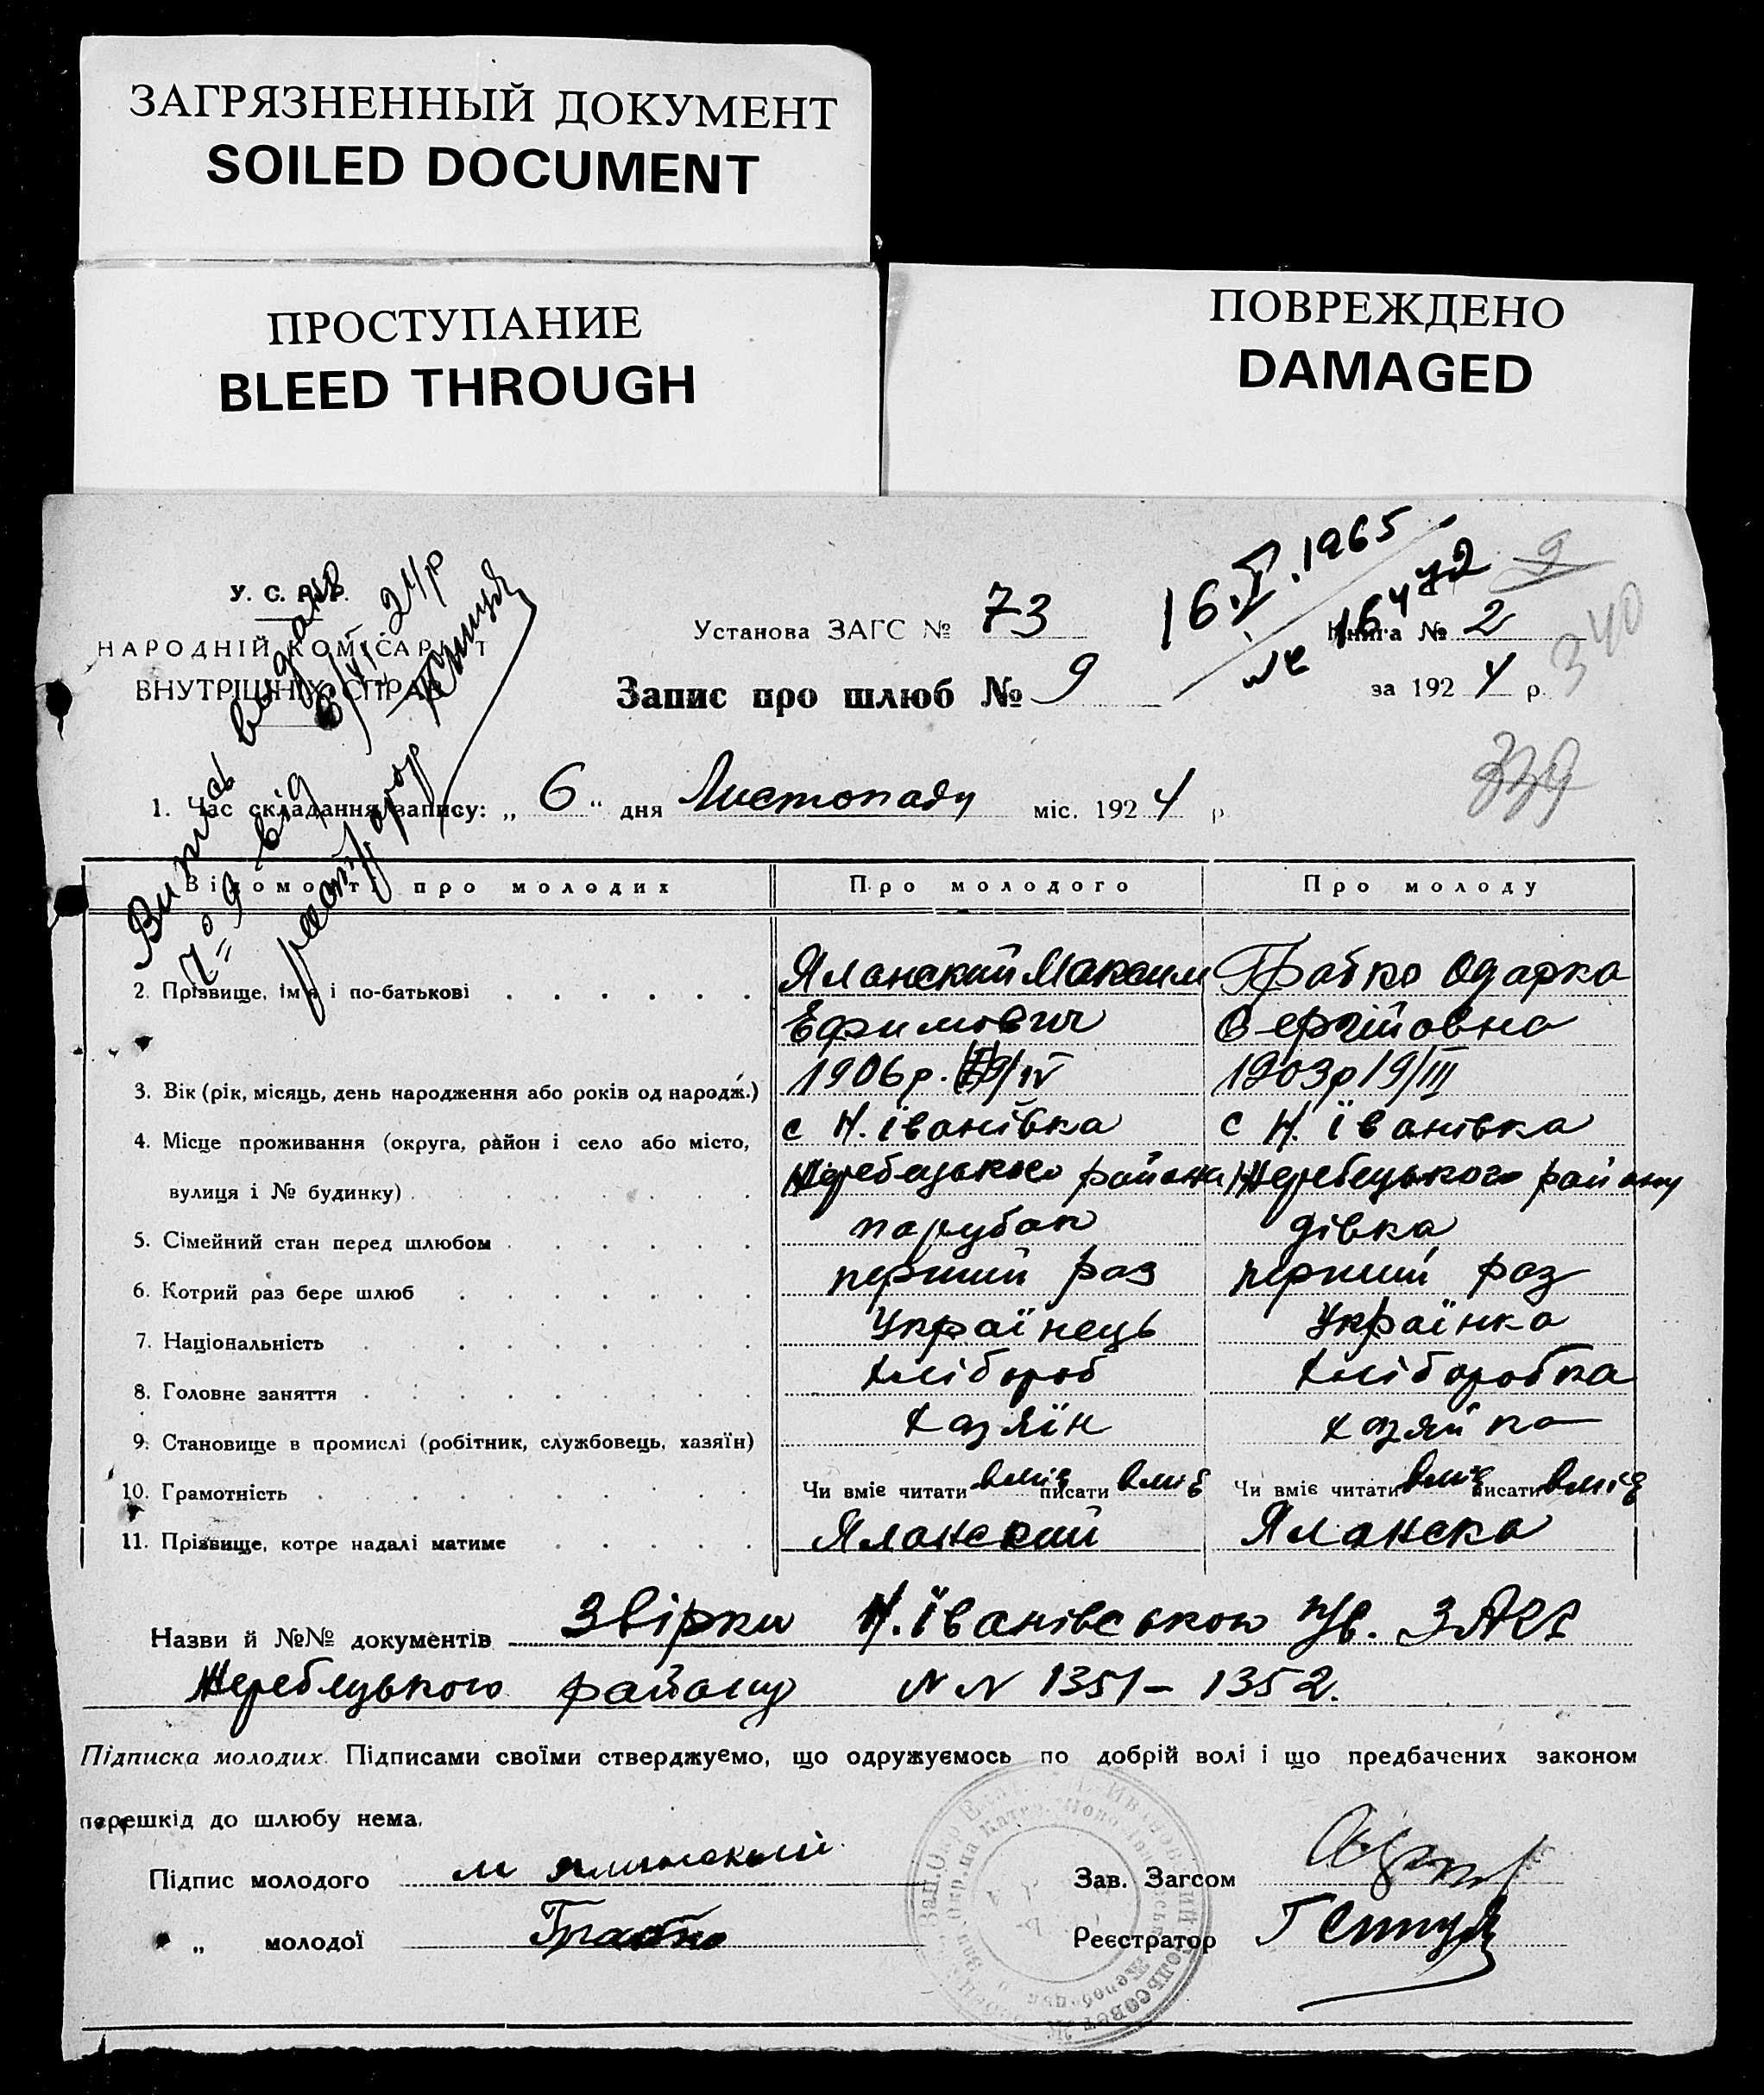 ЗАГРЯЗНЕННЫЙ ДОКУМЕНТ
SOILED DOCUMENT
ПРОСТУПАНИЕ
BLEED THROUGH
ПОВРЕЖДЕНО
DAMAGED
У. С. Р. Р.
НАРОДНІЙ КОМІСАРІЯТ
ВНУТРІШНІХ СПРАВ
Випись видано
9 від 6/XI 24/р
Установа ЗАГС № 73
16.V.1965
Книга № 2
9
340
Запис про шлюб № 9
за 1924 р.
339
1. Час складання запису: „ 6 “ дня Листопаду міс. 1924 р
Відомості про молодих
Про молодого
Про молоду
2. Прізвище, ім'я і по-батькові
Яланский Максим
Ефимович
Грабко Одарка
Сергійовна
3. Вік (рік, місяць, день народження або років од народж.)
1906р. 19/IV
1903р 19/III
4. Місце проживання (округа, район і село або місто,
вулиця і № будинку)
с Н. Іванівка
Жеребецького района
с Н. Іванівка
Жеребецького району
5. Сімейний стан перед шлюбом
парубок
дівка
6. Котрий раз бере шлюб
перший раз
перший раз
7. Національність
Українець
Українка
8. Головне заняття
Хлібороб
Хліборобка
9. Становище в промислі (робітник, службовець, хазяїн)
Хазяїн
Хазяйка
10. Грамотність
Чи вміє читати вміє писати вміє
Чи вміє читати вміє писати вміє
11. Прізвище, котре надалі матиме
Яланский
Яланска
Назви й №№ документів Звірки Н. Іванівською ЗАГС
Жеребецького району N N 1351 – 1352.
Підписка молодих. Підписами своїми стверджуємо, що одружуємось по добрій волі і що предбачених законом
перешкід до шлюбу нема.
Підпис молодого М Яланский
Зав. Загсом
„ молодої Грабко
Реєстратор